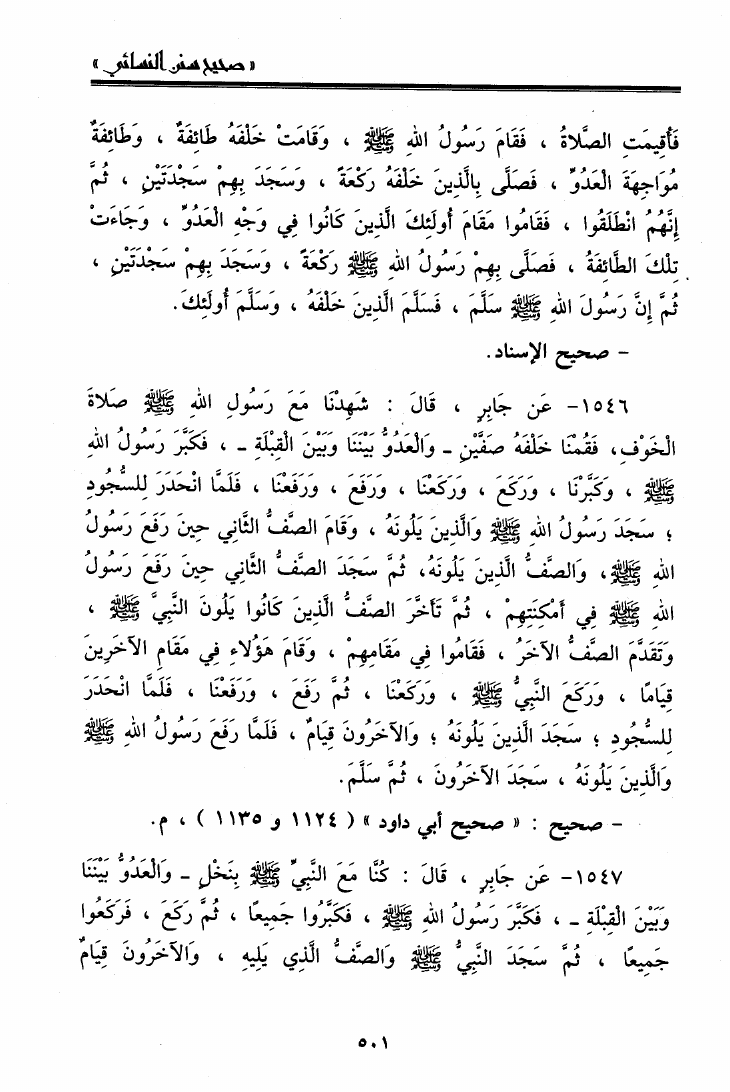 « صحيح سنن النسائي »
فَأُقِيمَتِ الصَّلاةُ ، فَقَامَ رَسُولُ اللهِ ﷺ ، وَقَامَتْ خَلْفَهُ طَائِفَةٌ ، وَطَائِفَةٌ
مُوَاجِهَةَ الْعَدُوِّ ، فَصَلَّى بِالَّذِينَ خَلْفَهُ رَكْعَةً ، وَسَجَدَ بِهِمْ سَجْدَتَيْنِ ، ثُمَّ
إِنَّهُمُ انْطَلَقُوا ، فَقَامُوا مَقَامَ أُولَئِكَ الَّذِينَ كَانُوا فِي وَجْهِ الْعَدُوِّ ، وَجَاءَتْ
تِلْكَ الطَّائِفَةُ ، فَصَلَّى بِهِمْ رَسُولُ اللهِ ﷺ رَكْعَةً ، وَسَجَدَ بِهِمْ سَجْدَتَيْنِ ،
ثُمَّ إِنَّ رَسُولَ اللهِ ﷺ سَلَّمَ ، فَسَلَّمَ الَّذِينَ خَلْفَهُ ، وَسَلَّمَ أُولَئِكَ.
– صحيح الإسناد.
١٥٤٦– عَن جَابِرٍ ، قَالَ : شَهِدْنَا مَعَ رَسُولِ اللهِ ﷺ صَلَاةَ
الْخَوْفِ، فَقُمْنَا خَلْفَهُ صَفَّيْنِ ـ وَالْعَدُوُّ بَيْنَنَا وَبَيْنَ الْقِبْلَةِ ـ ، فَكَبَّرَ رَسُولُ اللهِ
ﷺ ، وَكَبَّرْنَا ، وَرَكَعَ ، وَرَكَعْنَا ، وَرَفَعَ ، وَرَفَعْنَا ، فَلَمَّا انْحَدَرَ لِلسُّجُودِ
؛ سَجَدَ رَسُولُ اللهِ ﷺ وَالَّذِينَ يَلُونَهُ ، وَقَامَ الصَّفُّ الثَّانِي حِينَ رَفَعَ رَسُولُ
اللهِ ﷺ، وَالصَّفُّ الَّذِينَ يَلُونَهُ، ثُمَّ سَجَدَ الصَّفُّ الثَّانِي حِينَ رَفَعَ رَسُولُ
اللهِ ﷺ فِي أَمْكِنَتِهِمْ ، ثُمَّ تَأَخَّرَ الصَّفُّ الَّذِينَ كَانُوا يَلُونَ النَّبِيَّ ﷺ ،
وَتَقَدَّمَ الصَّفُّ الآخَرُ ، فَقَامُوا فِي مَقَامِهِمْ ، وَقَامَ هَؤُلَاءِ فِي مَقَامِ الآخَرِينَ
قِيَامًا ، وَرَكَعَ النَّبِيُّ ﷺ ، وَرَكَعْنَا ، ثُمَّ رَفَعَ ، وَرَفَعْنَا ، فَلَمَّا انْحَدَرَ
لِلسُّجُودِ ؛ سَجَدَ الَّذِينَ يَلُونَهُ ؛ وَالآخَرُونَ قِيَامٌ ، فَلَمَّا رَفَعَ رَسُولُ اللهِ ﷺ
وَالَّذِينَ يَلُونَهُ ، سَجَدَ الآخَرُونَ ، ثُمَّ سَلَّمَ.
– صحيح : « صحيح أبي داود » ( ١١٢٤ و ١١٣٥ ) ، م.
١٥٤٧– عَن جَابِرٍ ، قَالَ : كُنَّا مَعَ النَّبِيِّ ﷺ بِنَخْلٍ ـ وَالْعَدُوُّ بَيْنَنَا
وَبَيْنَ الْقِبْلَةِ ـ ، فَكَبَّرَ رَسُولُ اللهِ ﷺ ، فَكَبَّرُوا جَمِيعًا ، ثُمَّ رَكَعَ ، فَرَكَعُوا
جَمِيعًا ، ثُمَّ سَجَدَ النَّبِيُّ ﷺ وَالصَّفُّ الَّذِي يَلِيهِ ، وَالآخَرُونَ قِيَامٌ
٥٠١